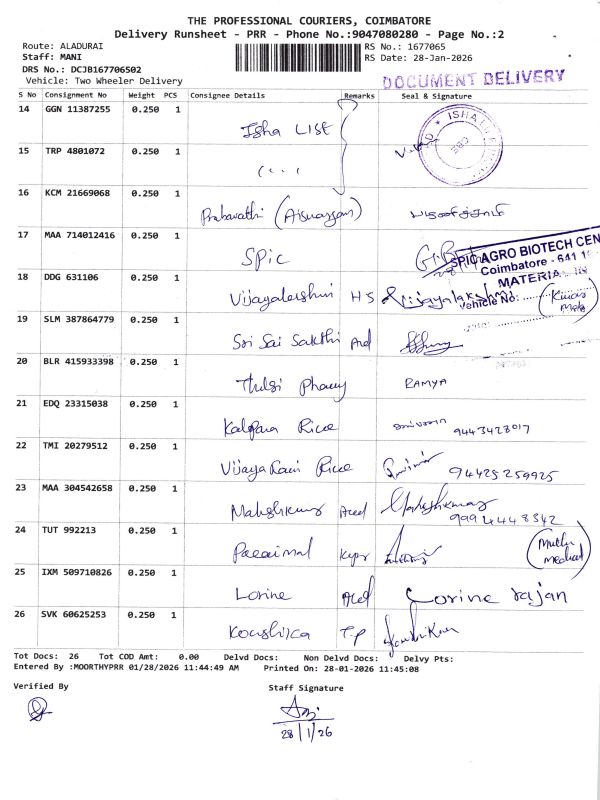 THE PROFESSIONAL COURIERS, COIMBATORE
Delivery Runsheet - PRR - Phone No.:9047080280 - Page No.:2
Route: ALADURAI
Staff: MANI
DRS No.: DCJB167706502
Vehicle: Two Wheeler Delivery
RS No.: 1677065
RS Date: 28-Jan-2026
DOCUMENT DELIVERY
S No Consignment No Weight PCS Consignee Details Remarks Seal & Signature
14 GGN 11387255 0.250 1 Isha LIST
15 TRP 4801072 0.250 1
16 KCM 21669068 0.250 1 Prabavathi
17 MAA 714012416 0.250 1 Spic
SPIC AGRO BIOTECH CEN
Coimbatore - 641
MATERIAL
Vehicle No:
18 DDG 631106 0.250 1 Vijayalakshmi H S Vijayalakshmi
19 SLM 387864779 0.250 1 Sri Sai Sakthi
20 BLR 415933398 0.250 1 Thulsi RAMYA
21 EDQ 23315038 0.250 1 Kalpana Rice 9443428017
22 TMI 20279512 0.250 1 Rice 94425 259925
23 MAA 304542658 0.250 1 Maheshkumar Maheshkumar
99944 48342
24 TUT 992213 0.250 1
(Muthu Medical)
25 IXM 509710826 0.250 1 Lorine Lorine rajan
26 SVK 60625253 0.250 1 Koushika T.P
Tot Docs: 26 Tot COD Amt: 0.00 Delvd Docs: Non Delvd Docs: Delvy Pts:
Entered By :MOORTHYPRR 01/28/2026 11:44:49 AM Printed On: 28-01-2026 11:45:08
Verified By
Staff Signature
28/1/26